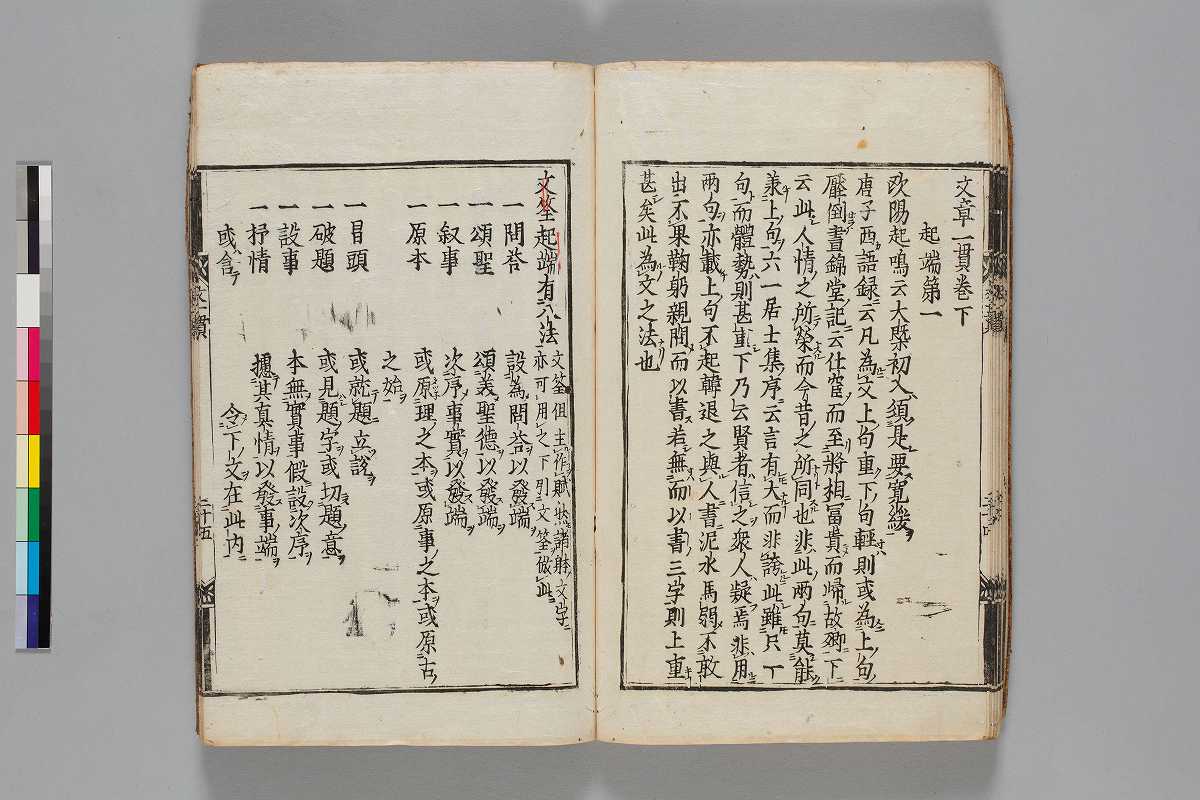 文章一貫卷下
起端第一
欧陽起鳴云大槩初入須是要寛緩
唐子西語録云凡為文上句重下句輕則或為上句
壓倒晝錦堂記云仕宦而至將相冨貴而歸故郷下
云此人情之所榮而今昔之所同也非此兩句莫能
兼上句六一居士集序云言有大而非誇此雖只一
句而體勢則甚重下乃云賢者信之衆人疑焉非用
兩句亦載上句不起韓退之與人書泥水馬弱不敢
出不果鞠躬親問而以書若無而以書三字則上重
甚矣此為文之法也
文筌起端有八法
文筌但主作賦然諸躰文字
亦可用之下引文筌倣此
一問荅 設為問荅以發端
一頌聖 頌美聖德以發端
一叙事 次序事實以發端
一原本 或原理之本或原事之本或原古
之始
一冒頭 或就題立說
一破題 或見題字或切題意
一設事 本無實事假設次序
一抒情 攄其真情以發事端
或含 令下文在此内
二十五